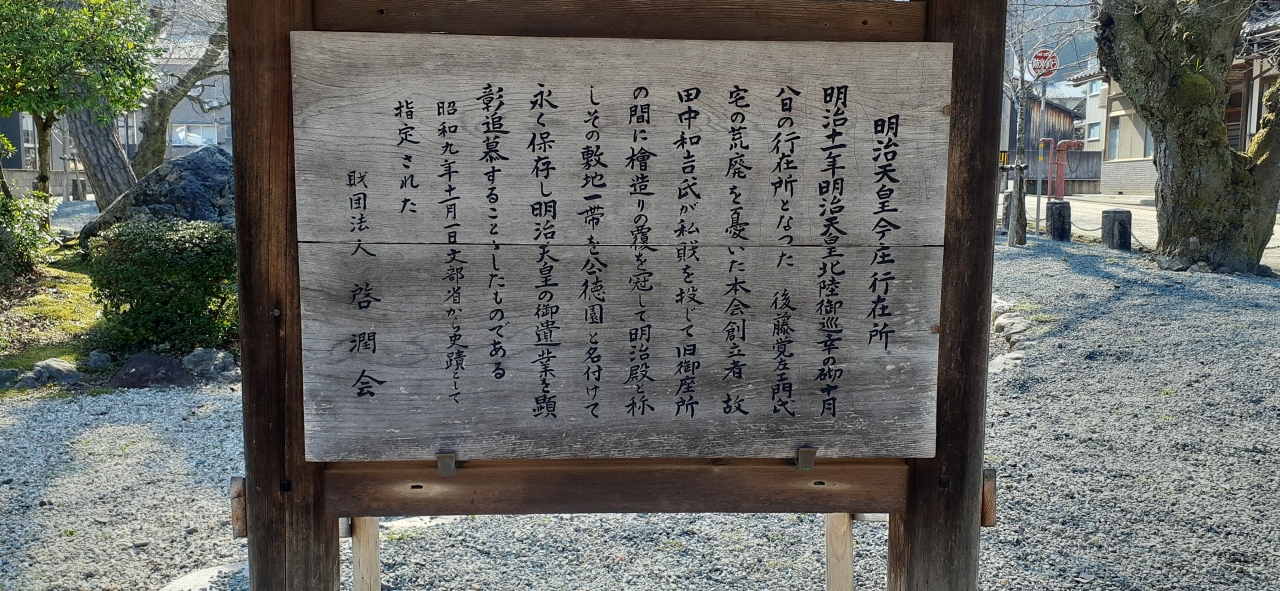 明治天皇今庄行在所
明治十一年明治天皇北陸御巡幸の砌十月
八日の行在所となった 後藤覚左エ門氏
宅の荒廃を憂いた本会創立者 故
田中和吉氏が私財を投じて旧御座所
の間に檜造りの覆を冠して明治殿と称
しその敷地一帯を公徳園と名付けて
永く保存し明治天皇の御遺業を顕
彰追慕することゝしたものである
昭和九年十一月一日文部省から史蹟として
指定された
財団法人 啓潤会